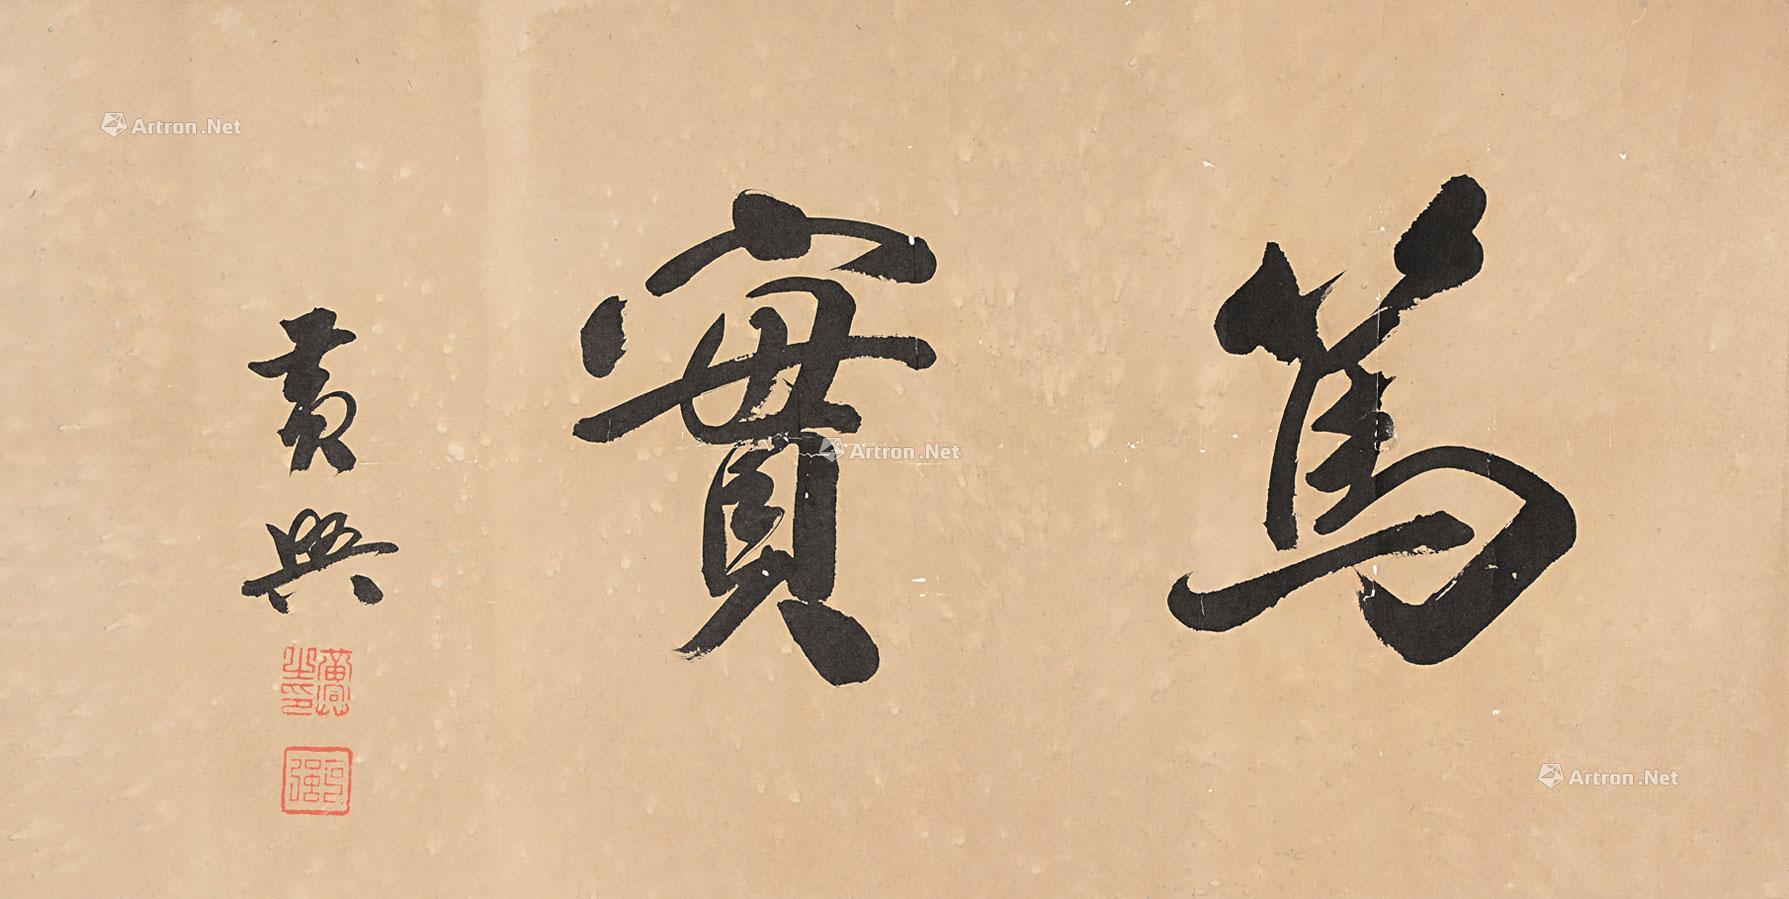 篤實
黄興
黃興之印
克強
Artron.Net
Artron.Net
Artron.Net